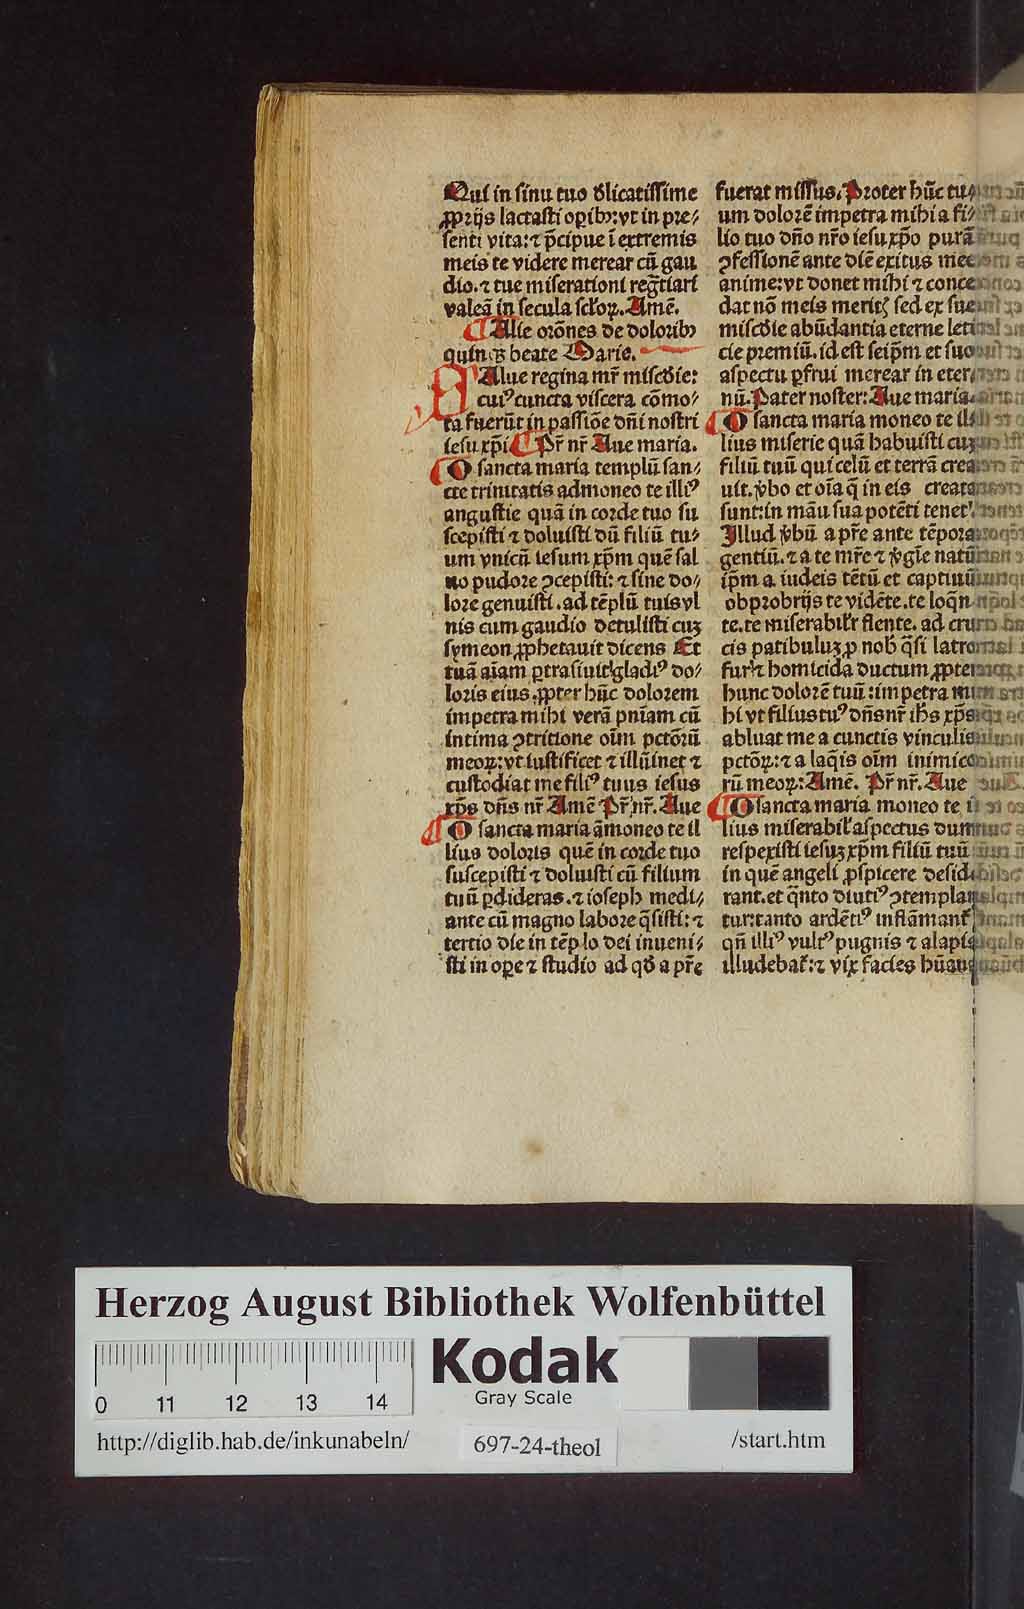 Qui in sinu tuo dłicatissime
ꝓprijs lactasti oꝑibꝰ: vt in pre⸗
senti vita: ⁊ p̄cipue ī extremis
meis te videre merear cū gau
dio. ⁊ tue miserationi reḡtiari
valeā in secula scłoꝝ. Amē.
Alie orōnes de dolorib⁊
quinqꝫ beate Marie.
SAlue regina mr̄ misc̄die:
cuiꝰ cuncta viscera cōmo⸗
ta fuerūt in passiōe dn̄i nostri
iesu xp̄i Pr̄ nr̄ Aue maria.
O sancta maria templū san⸗
cte trinitatis admoneo te illiꝰ
angustie quā in corde tuo su
scepisti ⁊ doluisti dū filiū tu⸗
um vnicū iesum xp̄m quē sal
uo pudore ꝯcepisti: ⁊ sine do⸗
lore genuisti. ad tēplū tuis vl
nis cum gaudio detulisti cuꝫ
symeon ꝓphetauit dicens Et
tuā aīam ꝑtrāsiuit gladiꝰ do⸗
loris eius. ꝓpter hūc dolorem
impetra mihi verā pn̄iam cū
intima ꝯtritione oīm pctōrū
meoꝝ: vt iustificet ⁊ illūinet ⁊
custodiat me filiꝰ tuus iesus
xp̄s dn̄s nr̄ Amē Pr̄ nr̄. Aue
O sancta maria āmoneo te il
lius doloris quē in corde tuo
suscepisti ⁊ doluisti cū filium
tuū ꝑdideras. ⁊ ioseph medi⸗
ante cū magno labore q̄sisti: ⁊
tertio die in tēplo dei inueni⸗
sti in oꝑe ⁊ studio ad qd̄ a pr̄e
fuerat missus. Proter hūc tu⸗
um dolorē impetra mihi a fi⸗
lio tuo dn̄o nr̄o iesu xp̄o purā
ꝯfessionē ante diē exitus mee
anime: vt donet mihi ⁊ conce
dat nō meis meritꝭ sed ex sue
misc̄die abūdantia eterne leti
cie premiū. id est seip̄m et suo
aspectu ꝑfrui merear in eter⸗
nū. Pater noster: Aue maria.
O sancta maria moneo te il⸗
lius miserie quā habuisti cuꝫ
filiū tuū qui celū et terrā crea
uit. v̄bo et oīa q̄ in eis creata
sunt: in māu sua potēti tenetꝰ.
Illud v̄bū a pr̄e ante tēpora
gentiū. ⁊ a te mr̄e ⁊ v̄gīe natū
ip̄m a iudeis tētū et captiuū
obprobrijs te vidēte. te loq̄n
te. te miserabilr̄ flente. ad cru
cis patibuluꝫ ꝓ nob̄ q̄si latro
fur ⁊ homicida ductum ꝓpter
hunc dolorē tuū: impetra mi
hi vt filius tuꝰ dn̄s nr̄ ih̄s xp̄s
abluat me a cunctis vinculis
pctōꝝ: ⁊ a laq̄is oīm inimico
rū meoꝝ: Amē. Pr̄ nr̄. Aue
O sancta maria moneo te i
lius miserabił aspectus dum
respexisti iesuꝫ xp̄m filiū tuū
in quē angeli ꝓspicere desid
rant. et q̄nto diutiꝰ ꝯtempla
tur: tanto ardētiꝰ inflāmant̄
qn̄ illiꝰ vultꝰ pugnis ⁊ alapis
illudebat̄: ⁊ vix facies hūa
Herzog August Bibliothek Wolfenbüttel
Kodak
Gray Scale
0 11 12 13 14
http://diglib.hab.de/inkunabeln/
697-24-theol
/start.htm